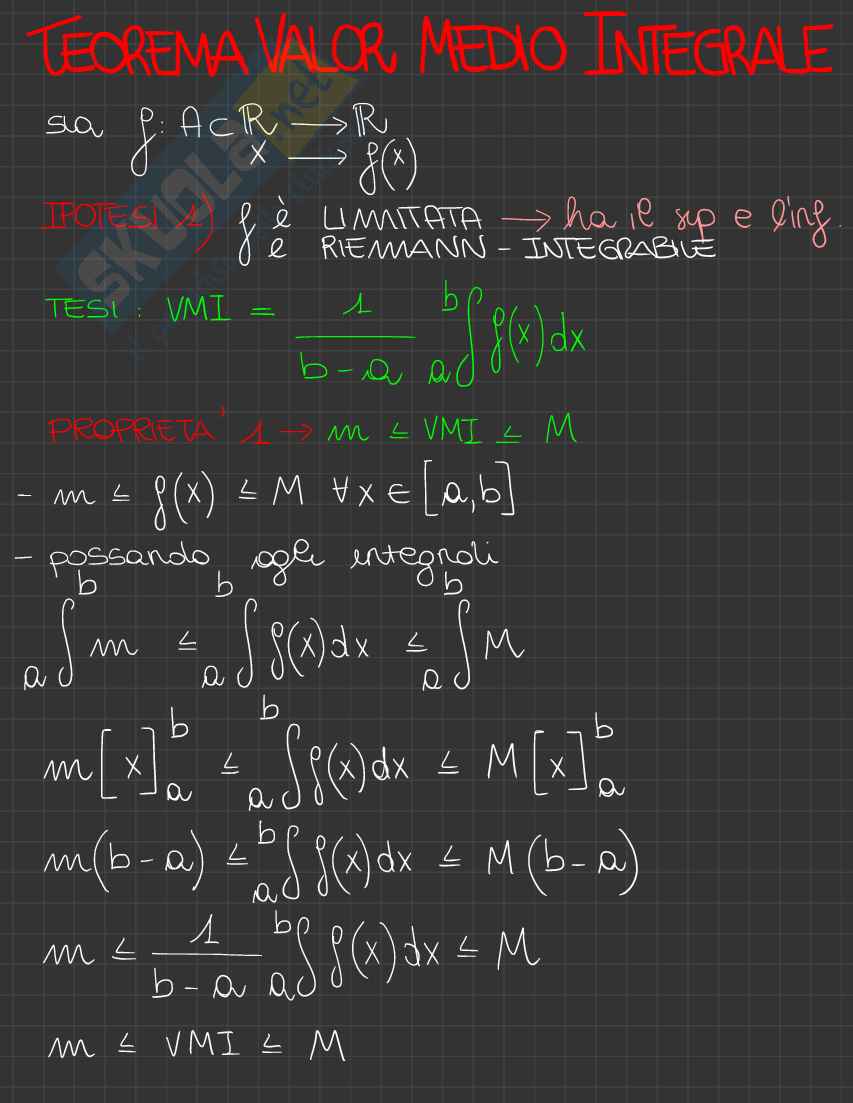 TEOREMA VALOR MEDIO INTEGRALE
sia f: A⊂ℝ → ℝ
x → f(x)
IPOTESI 1) f è LIMITATA → ha il sup e l'inf.
f è RIEMANN - INTEGRABILE
TESI: VMI = 1/(b-a) a∫b f(x)dx
PROPRIETA' 1 → m ≤ VMI ≤ M
- m ≤ f(x) ≤ M ∀x ∈ [a,b]
- passando agli integrali
a∫b m ≤ a∫b f(x)dx ≤ a∫b M
m[x]ab ≤ a∫b f(x)dx ≤ M[x]ab
m(b-a) ≤ a∫b f(x)dx ≤ M(b-a)
m ≤ 1/(b-a) a∫b f(x)dx ≤ M
m ≤ VMI ≤ M
SKUOLA.net